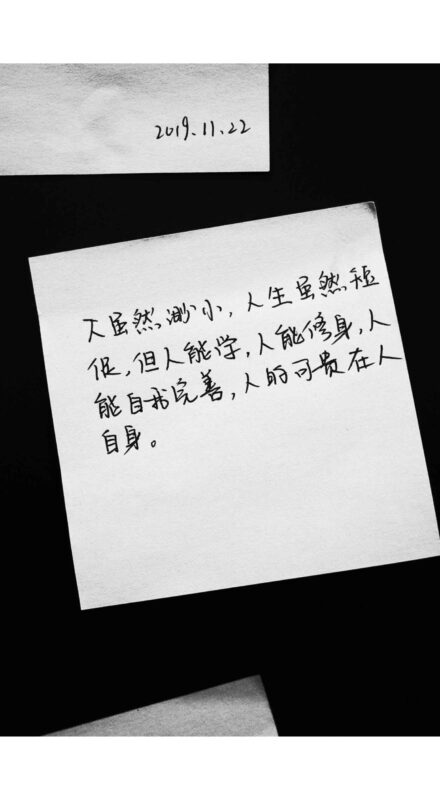 2019.11.22
人虽然渺小，人生虽然短
促，但人能学，人能修身，人
能自我完善，人的可贵在人
自身。